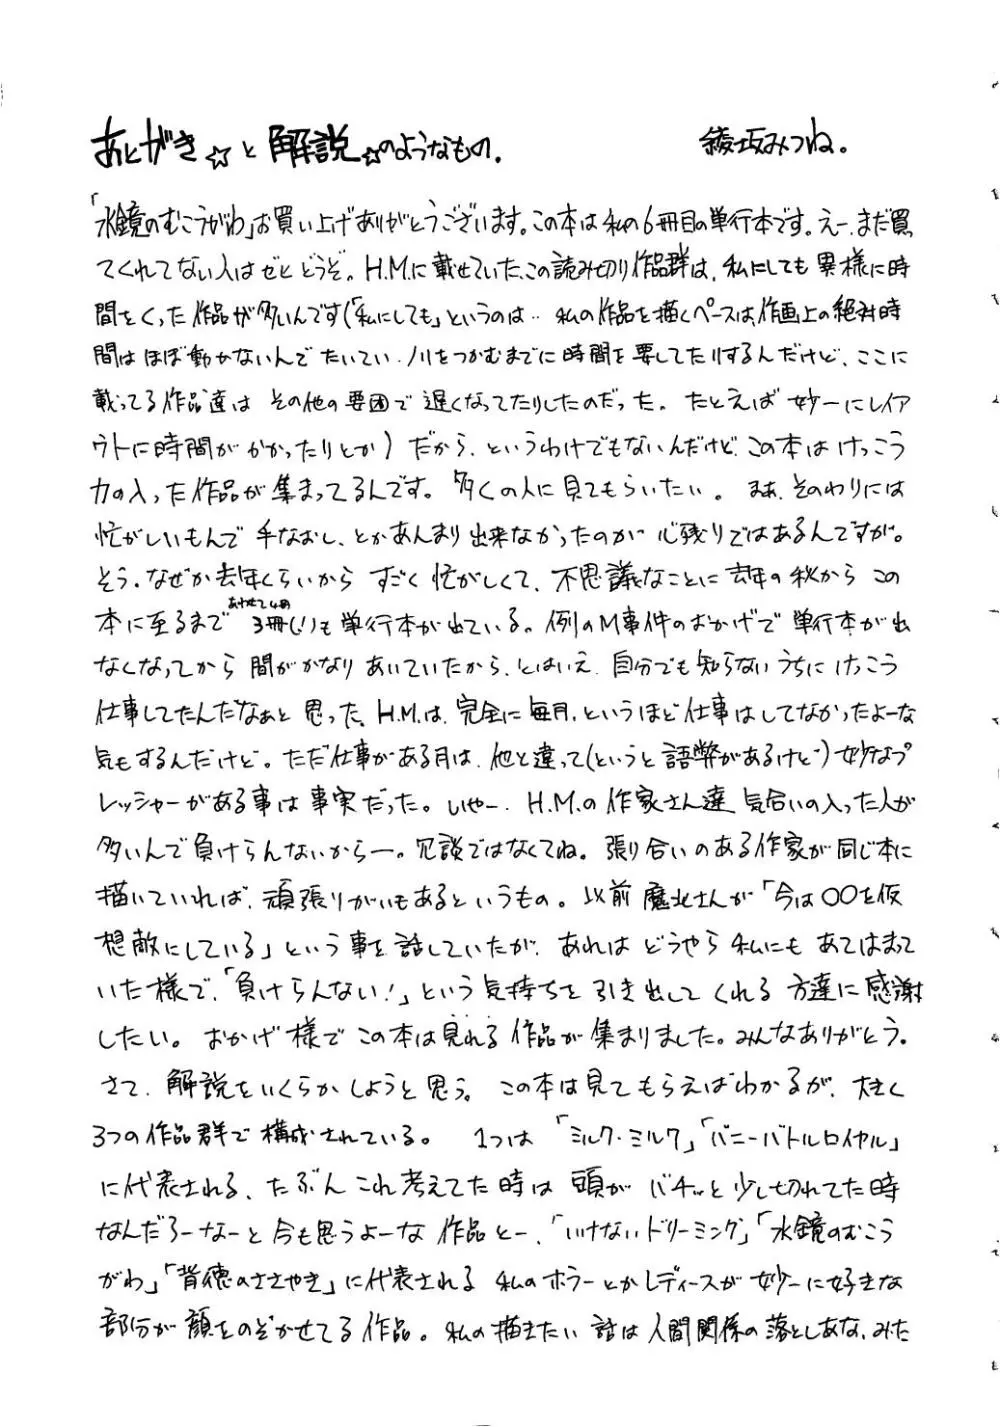 あとがき☆と解説☆のようなもの. 綾坂みつね。
「水鏡のむこうがわ」お買い上げありがとうございます。この本は私の6冊目の単行本です。えー、まだ買っ
てくれてない人はぜひどうぞ。H.M.に載せていた、この読み切り作品群は、私にしても異様に時
間をくった作品が多いんです(「私にしても」というのは‥私の作品を描くペースは、作画上の絶対時
間はほぼ動かないんでたいてい、ノリをつかむまでに時間を要してたりするんだけど、ここに
載ってる作品達はその他の要因で遅くなってたりしたのだった。たとえば妙ーにレイア
ウトに時間がかかったりとか)だから、というわけでもないんだけど、この本はけっこう
力の入った作品が集まってるんです。多くの人に見てもらいたい。まあ、そのわりには
忙がしいもんで手なおし、とかあんまり出来なかったのが心残りではあるんですが。
そう、なぜか去年くらいからすごく忙がしくて、不思議なことに去年の秋からこの
本に至るまで あわせて4冊 3冊(!)も単行本が出ている。例のM事件のおかげで単行本が出
なくなってから間がかなりあいていたから、とはいえ、自分でも知らないうちにけっこう
仕事してたんだなぁと思った。H.M.は、完全に毎月、というほど仕事はしてなかったよーな
気もするんだけど。ただ仕事がある月は、他と違って(というと語弊があるけど)妙なプ
レッシャーがある事は事実だった。いやー、H.M.の作家さん達気合いの入った人が
多いんで負けらんないからー。冗談ではなくてね。張り合いのある作家が同じ本に
描いていれば、頑張りがいもあるというもの。以前魔北さんが「今は〇〇を仮
想敵にしている」という事を話していたが、あれはどうやら私にもあてはまって
いた様で、「負けらんない!」という気持ちを引き出してくれる方達に感謝
したい。おかげ様でこの本は見れる作品が集まりました。みんなありがとう。
さて、解説をいくらかしようと思う。この本は見てもらえばわかるが、大きく
3つの作品群で構成されている。1つは「ミルク・ミルク」「バニーバトルロイヤル」
に代表される、たぶんこれ考えてた時は頭がバチッと少し切れてた時
なんだろーなーと今も思うよーな作品とー、「いけないドリーミング」「水鏡のむこう
がわ」「背徳のささやき」に代表される私のホラーとかレディースが妙ーに好きな
部分が顔をのぞかせてる作品。私の描きたい話は人間関係の落としあな、みた